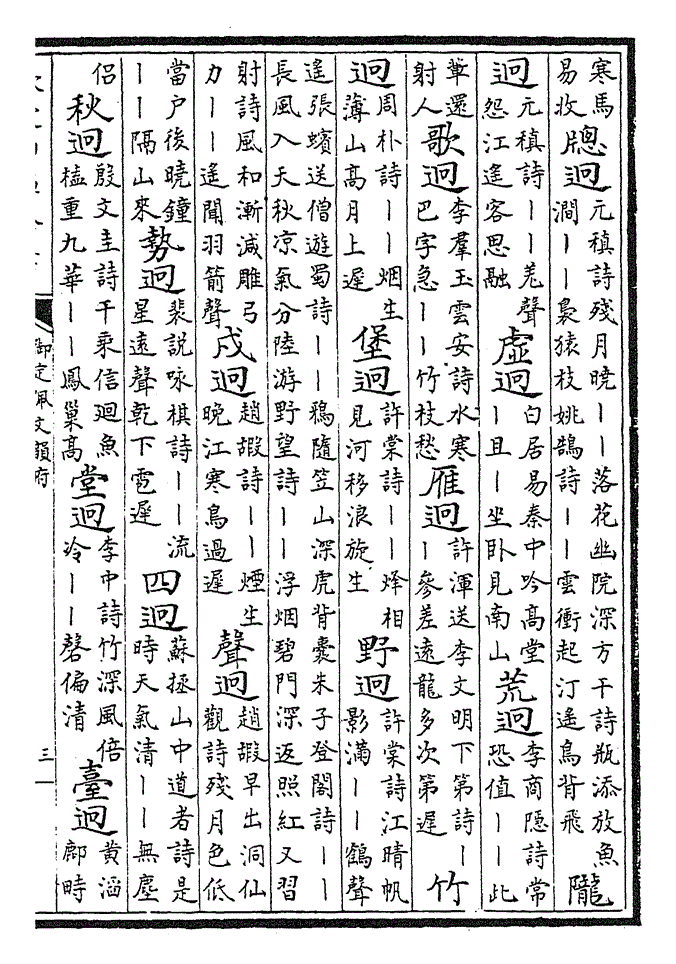 寒馬易收牎迥元稹詩殘月曉丨丨落花幽院深方干詩瓶添放魚澗丨丨梟猿枝姚鵠詩丨丨雲衝起汀遙鳥背飛隴
迥元稹詩丨丨羌聲怨江遙客思融虛迥白居易秦中吟高堂丨且丨坐卧見南山荒迥李商隱詩常恐值丨丨此
篳還射人歌迥李羣玉雲安詩水寒巴字急丨丨竹枝愁雁迥許渾送李文明下第詩丨丨參差遠龍多次第遲竹
迥周朴詩丨丨烟生薄山高月上遲堡迥許棠詩丨丨烽相見河移浪旋生野迥許棠詩江晴帆影滿丨丨鶴聲
遙張蠙送僧遊蜀詩丨丨鴉隨笠山深虎背囊朱子登閣詩丨丨長風入天秋凉氣分陸游野望詩丨丨浮烟碧門深返照紅又習
射詩風和漸減雕弓力丨丨遙聞羽箭聲戍迥趙嘏詩丨丨煙生晚江寒鳥過遲聲迥趙嘏早出洞仙觀詩殘月色低
當户後曉鐘丨丨隔山來勢迥裴説咏棋詩丨丨流星遠聲乾下雹遲四迥蘇拯山中道者詩是時天氣清丨丨無塵
侣秋迥殷文圭詩千乘信迴魚榼重九華丨丨鳳巢高堂迥李中詩竹深風倍冷丨丨磬偏清臺迥黄滔鄜畤
御定佩文韻府
三一